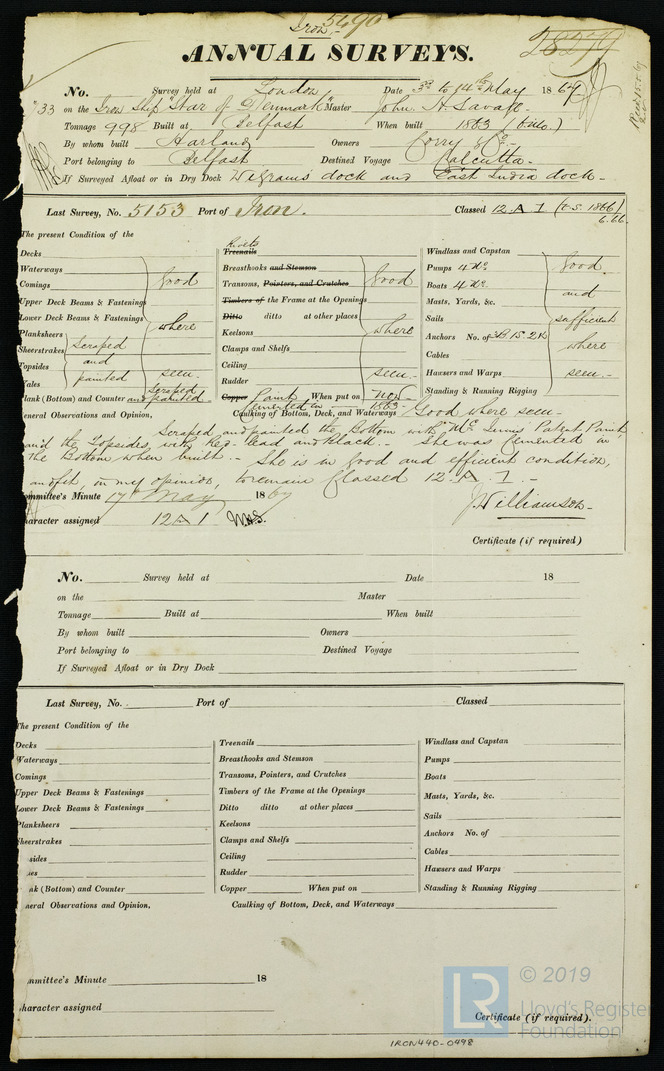 Iron 5490
ANNUAL SURVEYS.
28279
No. Survey held at London Date 3rd to 14th May 1867
33 on the Iron Ship "Star of Denmark" Master John H. Savage
Tonnage 998 Built at Belfast When built 1863
By whom built Harland Owners Corry & Co.
Port belonging to Belfast Destined Voyage Calcutta.
If Surveyed Afloat or in Dry Dock Wigrams dock and East India dock.
Last Survey, No. 5153 Port of Iron. Classed 12 A 1
6.66.
The present Condition of the
Decks
Waterways
Comings
Upper Deck Beams & Fastenings
Lower Deck Beams & Fastenings
Planksheers
Sheerstrakes
Topsides
Wales
lank (Bottom) and Counter and painted
good
where
seen
Scraped
and
painted
Scraped
Rivets
Treenails
Breasthooks and Stemson
Transoms, Pointers, and Crutches
Timbers of the Frame at the Openings
Ditto ditto at other places
Keelsons
Clamps and Shelfs
Ceiling
Rudder
Copper Paint When put on now
Cemented in 1863
good
where
seen
Windlass and Capstan
Pumps 4 No.
Boats 4 No.
Masts, Yards, &c.
Sails
Anchors No. of 3B. 1S. 2K
Cables
Hawsers and Warps
Standing & Running Rigging
good
and
sufficient
where
seen
eneral Observations and Opinion, Caulking of Bottom, Deck, and Waterways Good where seen
Scraped and painted the Bottom with Mc Innis' Patent Paint
and the Topsides with Red-lead and black. She was Cemented in
the Bottom when built. She is in good and efficient condition,
and fit, in my opinion, to remain Classed 12 A 1.
ommittee's Minute 17th May 1867
J. Williamson
haracter assigned 12 A 1
Certificate (if required)
No. Survey held at Date 18
on the Master
Tonnage Built at When built
By whom built Owners
Port belonging to Destined Voyage
If Surveyed Afloat or in Dry Dock
Last Survey, No. Port of Classed
The present Condition of the
Decks
Waterways
Comings
Upper Deck Beams & Fastenings
Lower Deck Beams & Fastenings
Planksheers
Sheerstrakes
sides
es
nk (Bottom) and Counter
Treenails
Breasthooks and Stemson
Transoms, Pointers, and Crutches
Timbers of the Frame at the Openings
Ditto ditto at other places
Keelsons
Clamps and Shelfs
Ceiling
Rudder
Copper When put on
Windlass and Capstan
Pumps
Boats
Masts, Yards, &c.
Sails
Anchors No. of
Cables
Hawsers and Warps
Standing & Running Rigging
neral Observations and Opinion, Caulking of Bottom, Deck, and Waterways
mmittee's Minute 18
haracter assigned
Certificate (if required).
IRON440-0498
LR © 2019
Lloyd's Register
Foundation